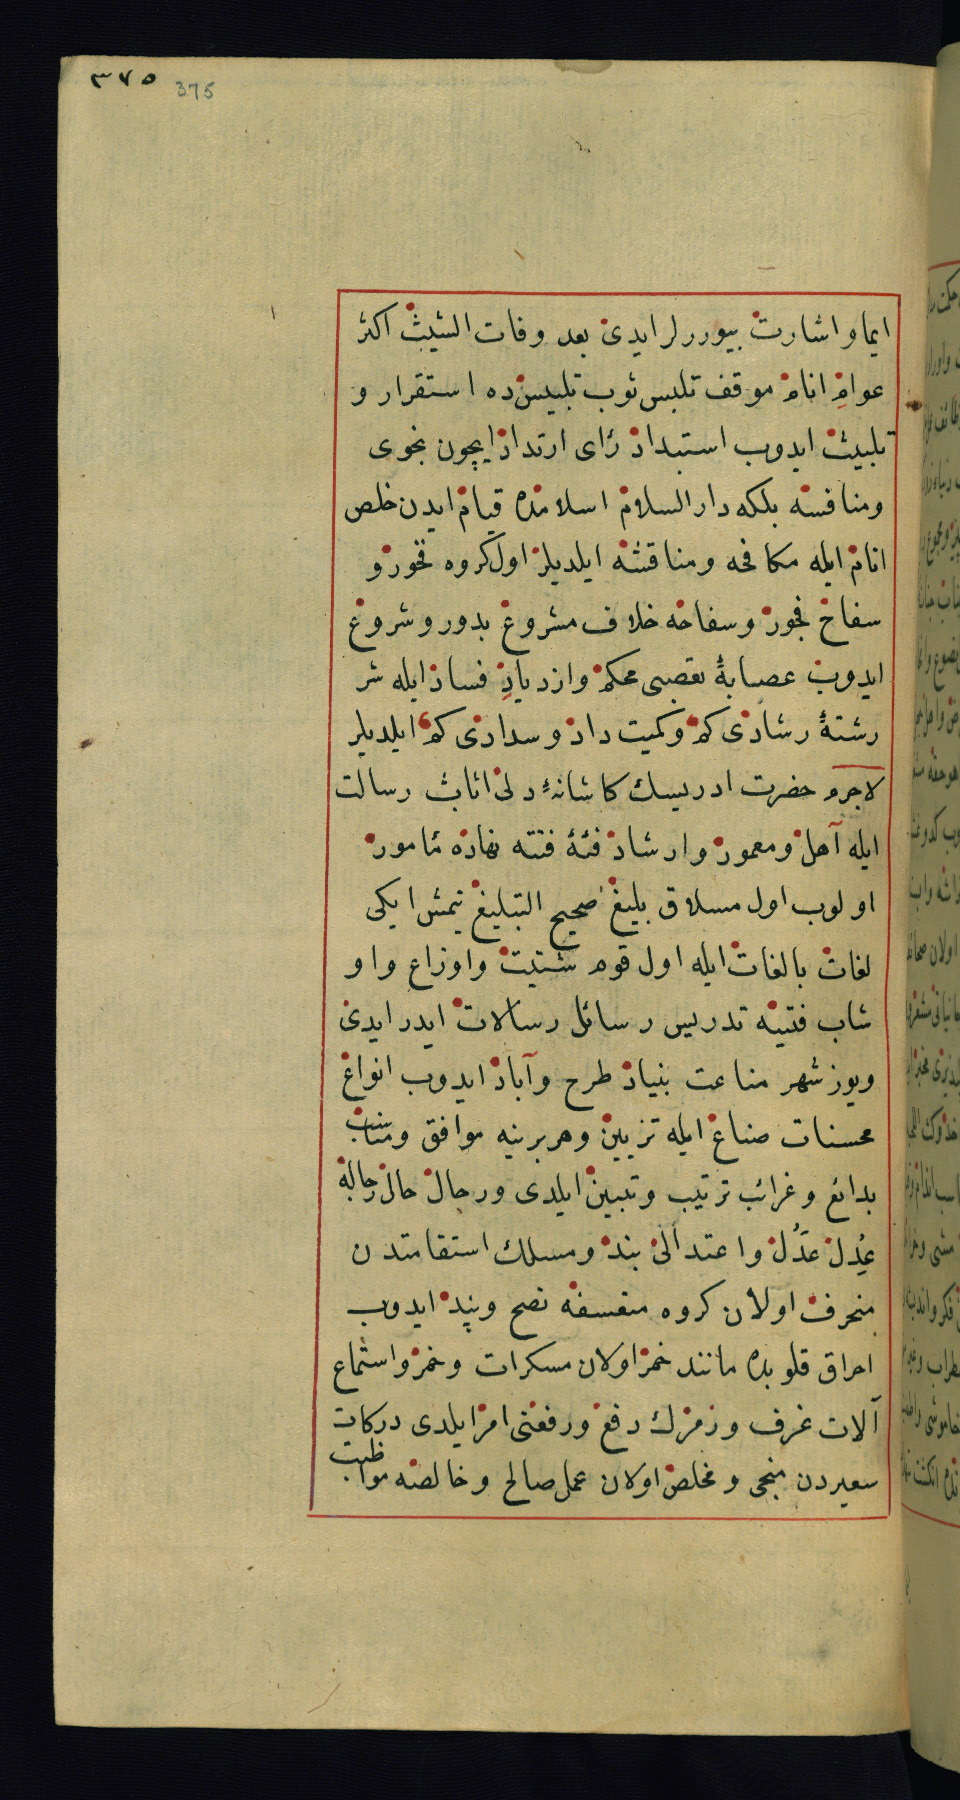 ٣٧٥ 375
ايما و اشارت بيوررلر ايدى بعد وفات الشيث اكثر
عوام انام موقف تلبس ثوب تلبيس ده استقرار و
تلبيث ايدوب استبداد راى ارتداد ايچون نجوى
ومنافسه بلكه دار السلام اسلامده قيام ايدن خلص
انام ايله مكافحه ومناقشه ايلديلر اول كروه فخور و
سفاح فجور وسفاحه خلاف مشروع بدور وشروع
ايدوب عصابۀ تعصبى محكم وازدياد فساد ايله شر
رشتۀ رشادى كم وكميت داد وسدادى كم ايلديلر
لاجرم حضرت ادريسك كاشانۀ دلى اثاث رسالت
ايله آهل ومعمور وارشاد فئۀ فتنه نهاده مأمور
اولوب اول مسلاق بليغ صحيح التبليغ يتمش ايكى
لغات بالغات ايله اول قوم شتيت واوزاع واو
شاب فتيه تدريس رسائل رسالات ايدر ايدى
ويوز شهر مناعت بنياد طرح وآباد ايدوب انواع
محسنات صناع ايله تزيين وهر برينه موافق ومناسب
بدائع وغرائب ترتيب وتبيين ايلدى ورحال حال رجاله
عدل عدل واعتدالى بند ومسلك استقامتدن
منحرف اولان كروه متعسفه نصح وپند ايدوب
احراق قلوبده مانند خمر اولان مسكرات وخمر واستماع
آلات غرف وزمرك دفع ورفعنى امر ايلدى دركات
سعيردن منجى ومخلص اولان عمل صالح وخالصه مواظبت